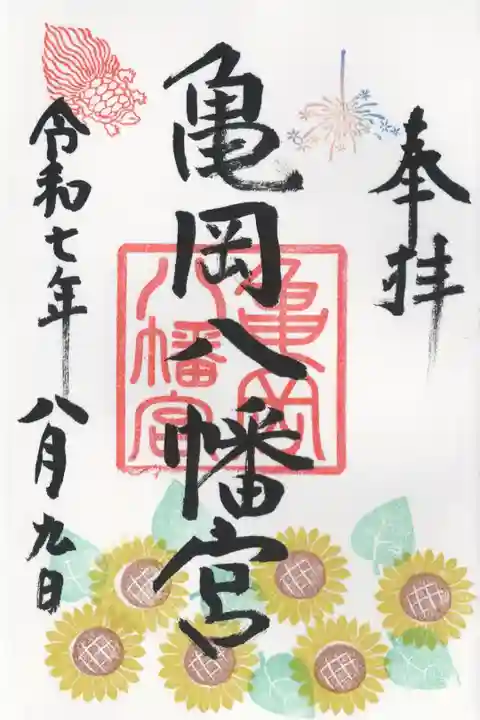 奉拝
亀岡八幡宮
亀岡
八幡宮
令和七年八月九日